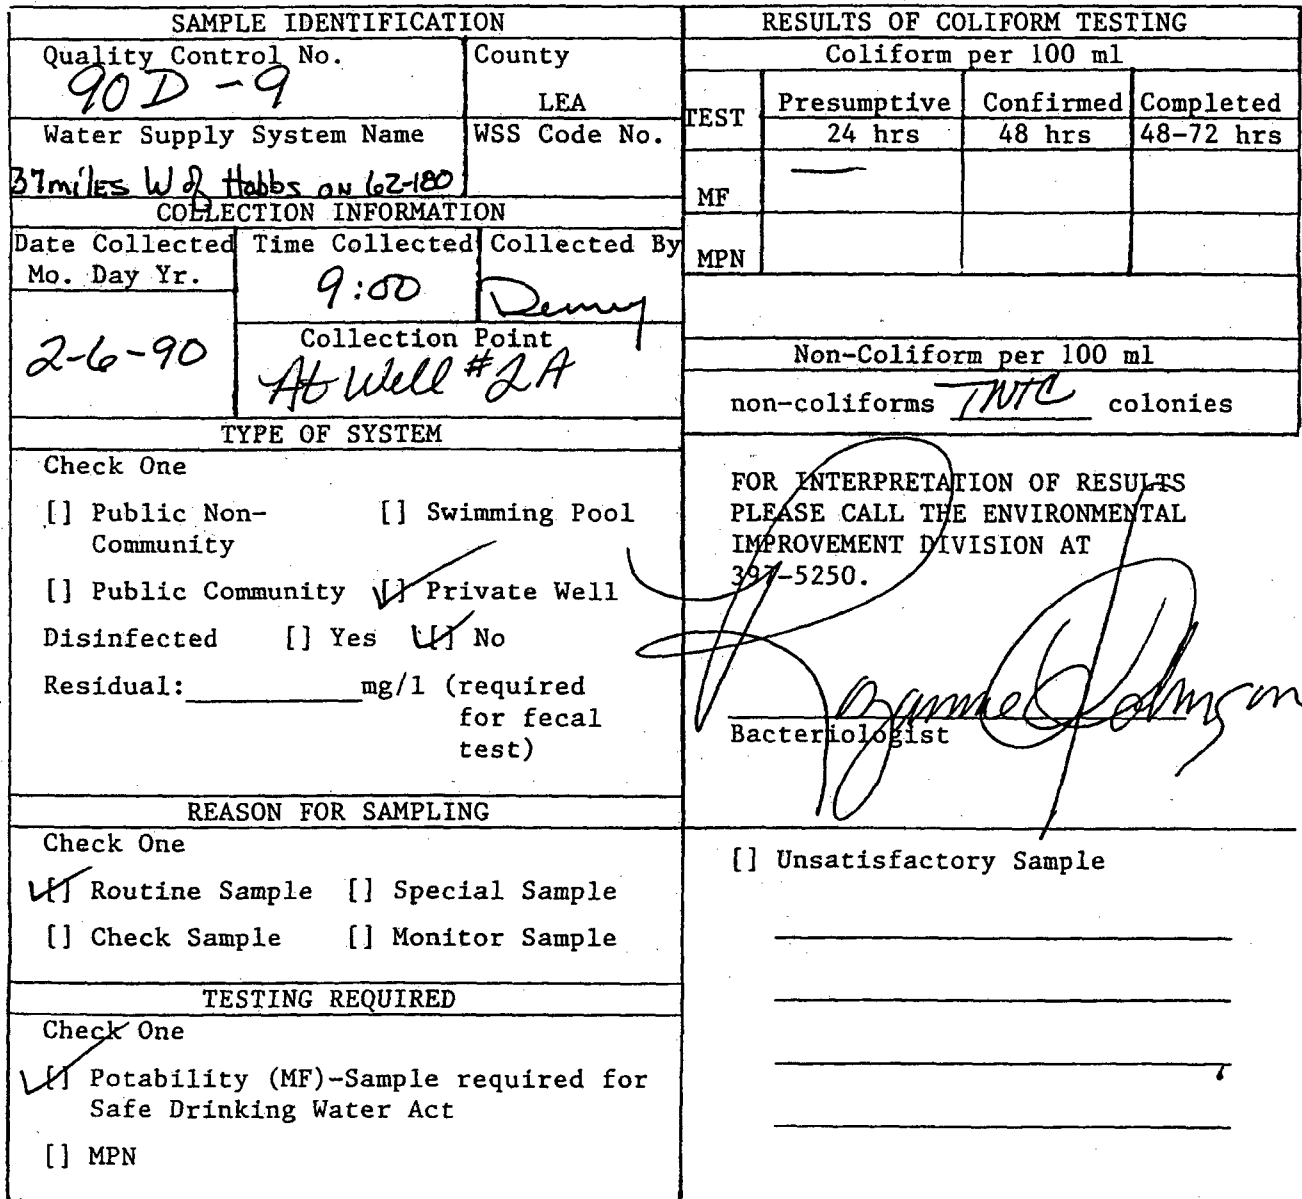 SAMPLE IDENTIFICATION
Quality Control No.
90D-9
County
LEA
Water Supply System Name
37 miles W of Hobbs on 62-180
WSS Code No.
COLLECTION INFORMATION
Date Collected
Mo. Day Yr.
2-6-90
Time Collected
9:00
Collected By
Collection Point
At Well #2A
TYPE OF SYSTEM
Check One
[] Public Non-
Community
[] Swimming Pool
[] Public Community
[] Private Well
Disinfected [] Yes [] No
Residual: mg/l (required
for fecal
test)
REASON FOR SAMPLING
Check One
[] Routine Sample [] Special Sample
[] Check Sample [] Monitor Sample
TESTING REQUIRED
Check One
[] Potability (MF)-Sample required for
Safe Drinking Water Act
[] MPN
RESULTS OF COLIFORM TESTING
Coliform per 100 ml
TEST
Presumptive
24 hrs
Confirmed
48 hrs
Completed
48-72 hrs
MF —
MPN
Non-Coliform per 100 ml
non-coliforms TNTC colonies
FOR INTERPRETATION OF RESULTS
PLEASE CALL THE ENVIRONMENTAL
IMPROVEMENT DIVISION AT
397-5250.
Johnson
Bacteriologist
[] Unsatisfactory Sample